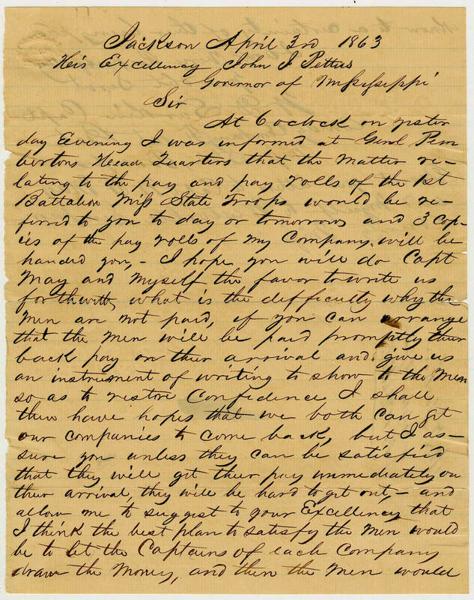 Jackson April 3rd 1863
His Excellency John J Pettus
Governor of Mississippi
Sir
At 6 oclock on yester
day Evening I was informed at Genl Pem
bertons Head Quarters that the Matter re-
lating to the pay and pay rolls of the 1st
Battalion Miss State Troops would be re-
ferred to you to day or tomorrow and 3 Cop-
ies of the pay rolls of my Company will be
handed you - I hope you will do Capt
May and myself the favor to write us
forthwith, what is the difficulty why the
Men are not paid, if you can arrange
that the Men will be paid promptly their
back pay on their arrival and give us
an instrument of writing to show to the Men
so as to restore Confidence I shall
then have hopes that we both can get
our companies to come back, but I as-
sure you unless they can be satisfied
that they will get their pay immediately on
their arrival, they will be hard to get out - and
allow me to suggest to your Excellency that
I think the best plan to satisfy the Men would
be to let the Captains of each Company
draw the Money, and then the Men would